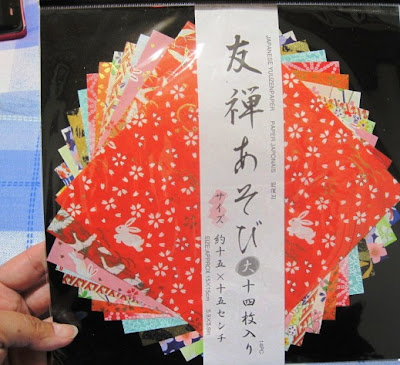 友禅あそび
JAPANESE YUUZENPAPER
PAPER JAPONAIS
サイズ 約十五×十五センチ
SIZE APPROX 15X15cm
大 十四枚入り
14PC